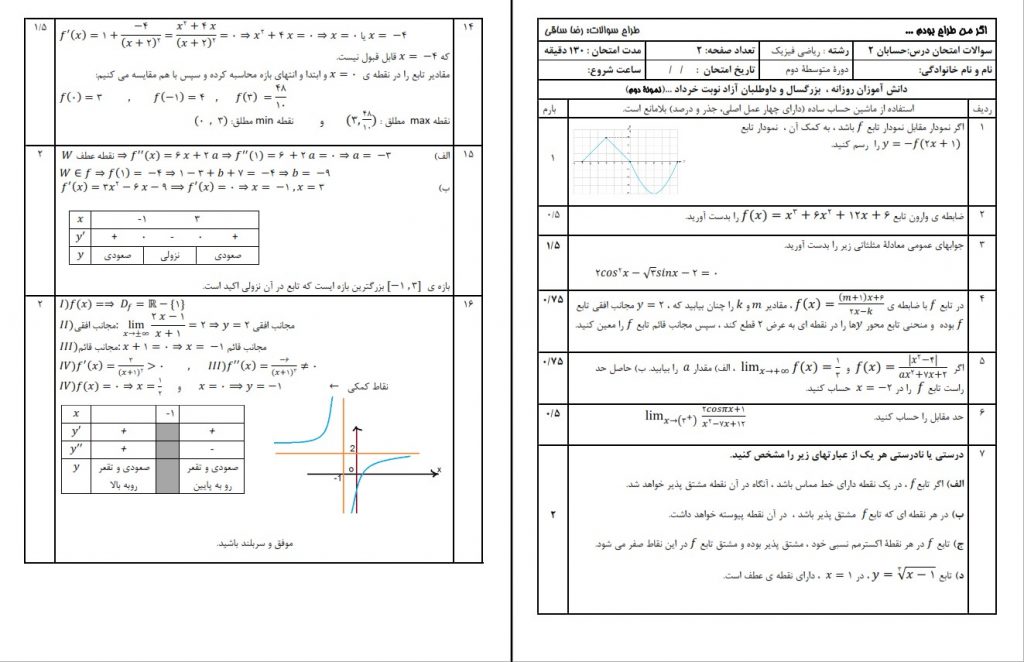 اگر من طراح بودم ...
طراح سوالات: رضا ساقی
سوالات امتحان درس:حسابان ۲
رشته : ریاضی فیزیک
تعداد صفحه: ۲
مدت امتحان : ۱۳۰ دقیقه
نام و نام خانوادگی:
دورهٔ متوسطهٔ دوم
تاریخ امتحان : / /
ساعت شروع:
دانش آموزان روزانه ، بزرگسال و داوطلبان آزاد نوبت خرداد ...(نمونهٔ دوم)
ردیف
استفاده از ماشین حساب ساده (دارای چهار عمل اصلی، جذر و درصد) بلامانع است.
بارم
۱
اگر نمودار مقابل نمودار تابع f باشد ، به کمک آن ، نمودار تابع
y = −f(۲x + ۱) را رسم کنید.
۱
۲
ضابطه ی وارون تابع f(x) = x³ + ۶x² + ۱۲x + ۶ را بدست آورید.
۰/۵
۳
جوابهای عمومی معادلهٔ مثلثاتی زیر را بدست آورید.
۱/۵
۲cos²x − √۳sinx − ۲ = ۰
۴
در تابع f با ضابطه ی f(x) = (m+۱)x+۶ / ۲x−k ، مقادیر m و k را چنان بیابید که ، y = ۲ مجانب افقی تابع
f بوده و منحنی تابع محور yها را در نقطه ای به عرض ۲ قطع کند ، سپس مجانب قائم تابع f را معین کنید.
۰/۷۵
۵
اگر f(x) = |x²−۴| / ax²+۷x+۲ و lim x→+∞ f(x) = ۱/۳ ، الف) مقدار a را بیابید. ب) حاصل حد
راست تابع f را در x = −۲ حساب کنید.
۰/۷۵
۶
حد مقابل را حساب کنید. lim x→(۳⁺) ۲cosπx+۱ / x²−۷x+۱۲
۰/۵
۷
درستی یا نادرستی هر یک از عبارتهای زیر را مشخص کنید.
الف) اگر تابع f ، در یک نقطه دارای خط مماس باشد ، آنگاه در آن نقطه مشتق پذیر خواهد شد.
ب) در هر نقطه ای که تابع f مشتق پذیر باشد ، در آن نقطه پیوسته خواهد داشت.
۲
ج) تابع f در هر نقطهٔ اکسترمم نسبی خود ، مشتق پذیر بوده و مشتق تابع f در این نقاط صفر می شود.
د) تابع y = ∛x − ۱ ، در x = ۱ ، دارای نقطه ی عطف است.
۱۴
f′(x) = ۱ + −۴/(x + ۲)² = x² + ۴x/(x + ۲)² = ۰ ⇒ x² + ۴x = ۰ ⇒ x = ۰ یا x = −۴
۱/۵
که x = −۴ قابل قبول نیست.
مقادیر تابع را در نقطه ی x = ۰ و ابتدا و انتهای بازه محاسبه کرده و سپس با هم مقایسه می کنیم:
f(۰) = ۳ , f(−۱) = ۴ , f(۳) = ۴۸/۱۰
نقطه max مطلق : (۳, ۴۸/۱۰) و نقطه min مطلق: (۰ , ۳)
۱۵
الف) W نقطه عطف ⇒ f″(x) = ۶x + ۲a ⇒ f″(۱) = ۶ + ۲a = ۰ ⇒ a = −۳
۲
W ∈ f ⇒ f(۱) = −۴ ⇒ ۱ − ۳ + b + ۷ = −۴ ⇒ b = −۹
ب) f′(x) = ۳x² − ۶x − ۹ ⟹ f′(x) = ۰ ⇒ x = −۱, x = ۳
x -۱ ۳
y′ + ۰ - ۰ +
y صعودی نزولی صعودی
بازه ی [−۱, ۳] بزرگترین بازه ایست که تابع در آن نزولی اکید است.
۱۶
I)f(x) ⟹ D_f = ℝ − {۱}
۲
II)مجانب افقی: lim x→±∞ ۲x − ۱ / x + ۱ = ۲ ⇒ y = ۲ مجانب افقی
III)مجانب قائم: x + ۱ = ۰ ⇒ x = −۱ مجانب قائم
IV)f′(x) = ۳/(x+۱)² > ۰ , III)f″(x) = −۶/(x+۱)³ ≠ ۰
IV)f(x) = ۰ ⇒ x = ۱/۲ و x = ۰ ⟹ y = −۱ ← نقاط کمکی
x -۱
y′ + +
y″ + -
y صعودی و تقعر روبه بالا صعودی و تقعر رو به پایین
2
o
-1
x
موفق و سربلند باشید.